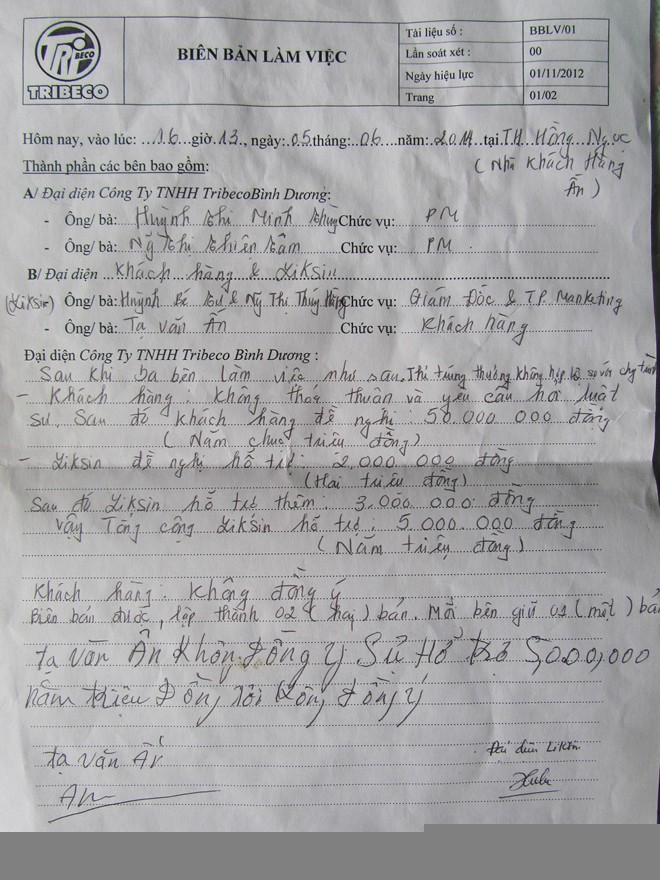 TRIBECO
BIÊN BẢN LÀM VIỆC
Tài liệu số : BBLV/01
Lần soát xét : 00
Ngày hiệu lực 01/11/2012
Trang 01/02
Hôm nay, vào lúc: 16 giờ 13, ngày: 05 tháng: 06 năm: 2014 tại T.H. Hồng Ngọc
Thành phần các bên bao gồm: (Nhà Khách Hàng Ẩn)
A/ Đại diện Công Ty TNHH TribecoBình Dương:
- Ông/ bà: Huỳnh Thị Minh Chức vụ: PM
- Ông/ bà: Ng Thị Thiên Tâm Chức vụ: PM
B/ Đại diện Khách hàng & Liksin
(Liksin) Ông/ bà: Huỳnh & Ng Thị Thúy Hằng Chức vụ: Giám Đốc & T.P. Marketing
- Ông/ bà: Tạ Văn Ẩn Chức vụ: Khách hàng
Đại diện Công Ty TNHH Tribeco Bình Dương :
Sau khi ba bên làm việc như sau. Thì trúng thưởng không hợp lệ so với
- Khách hàng: không thỏa thuận và yêu cầu hỏi luật
sư. Sau đó khách hàng đề nghị: 50.000.000 đồng
(Năm chục triệu đồng)
- Liksin đề nghị hỗ trợ: 2,000.000 đồng
(Hai triệu đồng)
Sau đó Liksin hỗ trợ thêm: 3.000.000 đồng
Vậy Tổng cộng Liksin hỗ trợ: 5.000.000 đồng
(Năm triệu đồng)
Khách hàng: Không đồng ý
Biên bản được lập thành 02 (hai) bản. Mỗi bên giữ 01 (một) bản
tạ văn Ẩn Không Đồng Ý Sự Hổ trợ 5,000,000
năm triệu Đồng tôi Không Đồng Ý
tạ văn Ẩn
Đại diện Liksin